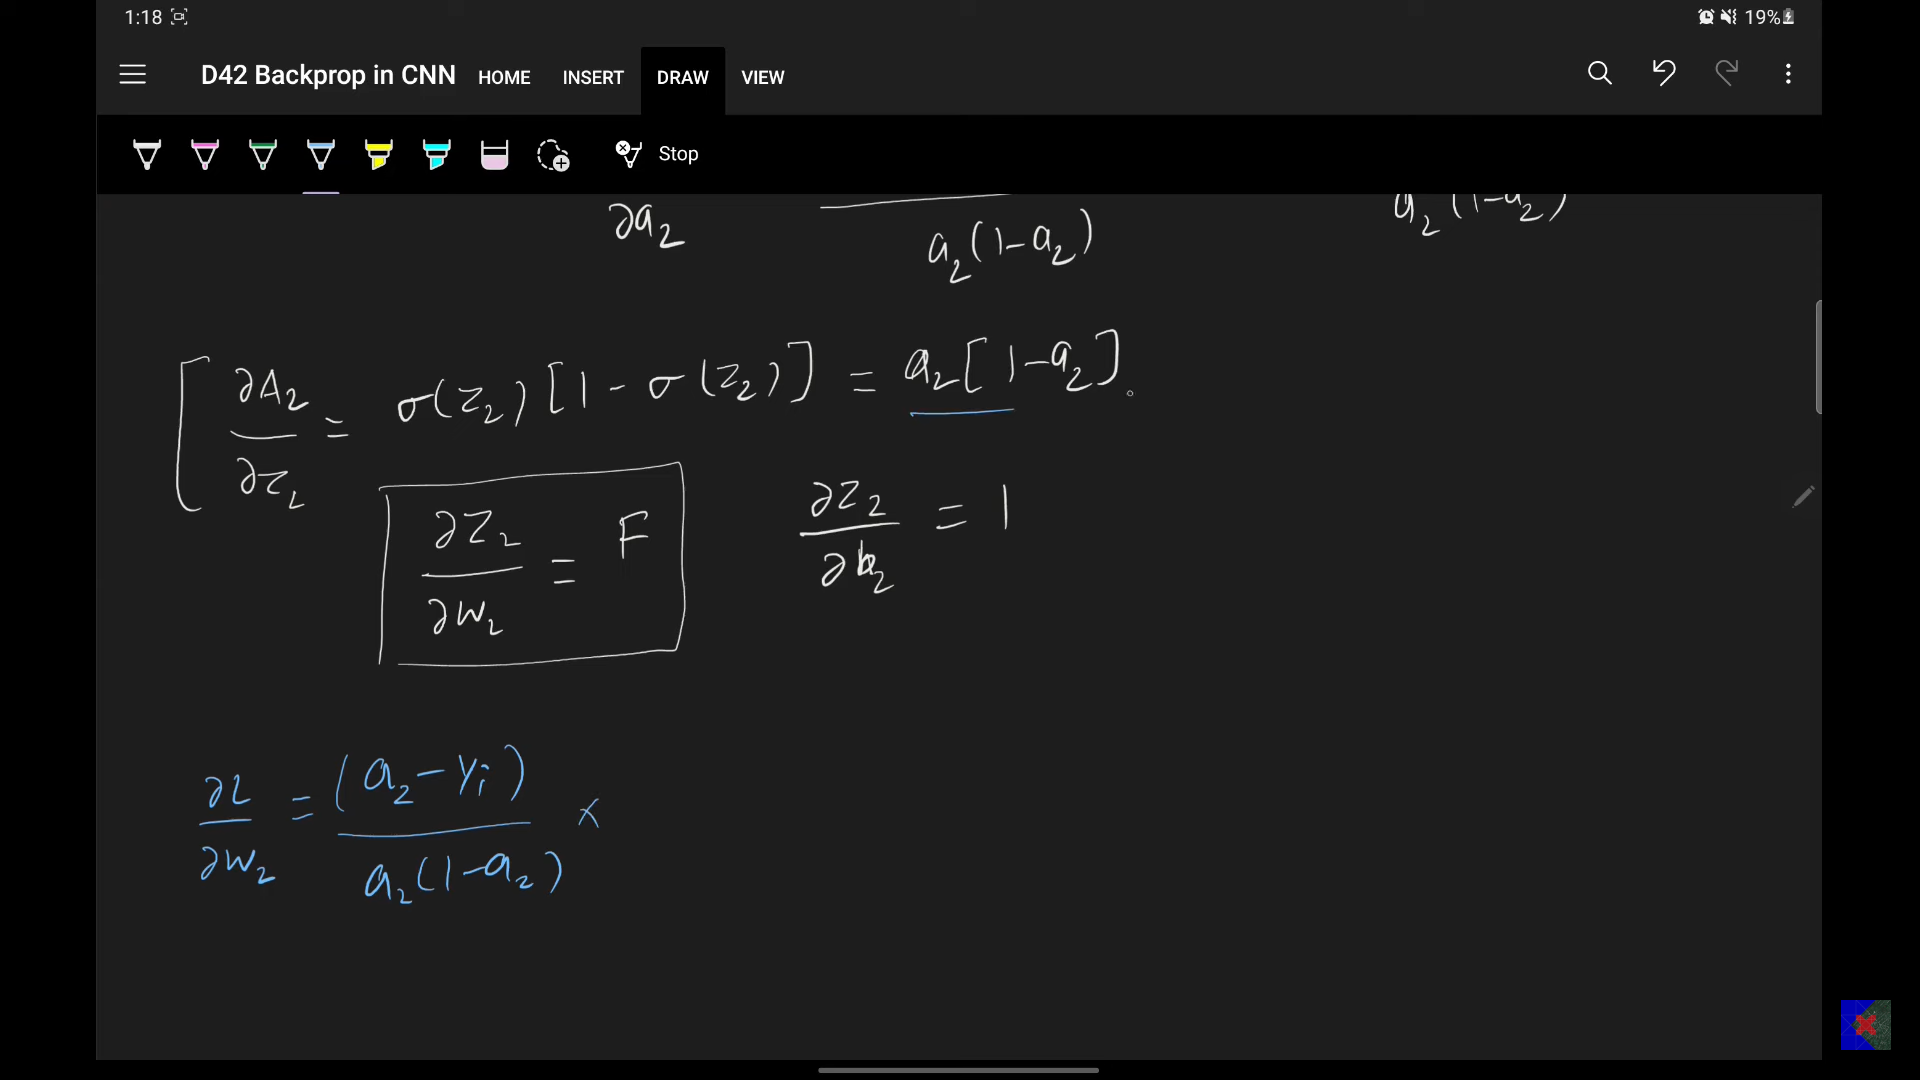 1:18 19%
D42 Backprop in CNN HOME INSERT DRAW VIEW
Stop
∂a₂ a₂(1-a₂) a₂(1-a₂)
∂A₂/∂z₂ = σ(z₂)[1 - σ(z₂)] = a₂[1-a₂].
∂Z₂/∂W₂ = F ∂Z₂/∂b₂ = 1
∂L/∂W₂ = (a₂-yᵢ)/a₂(1-a₂) ×